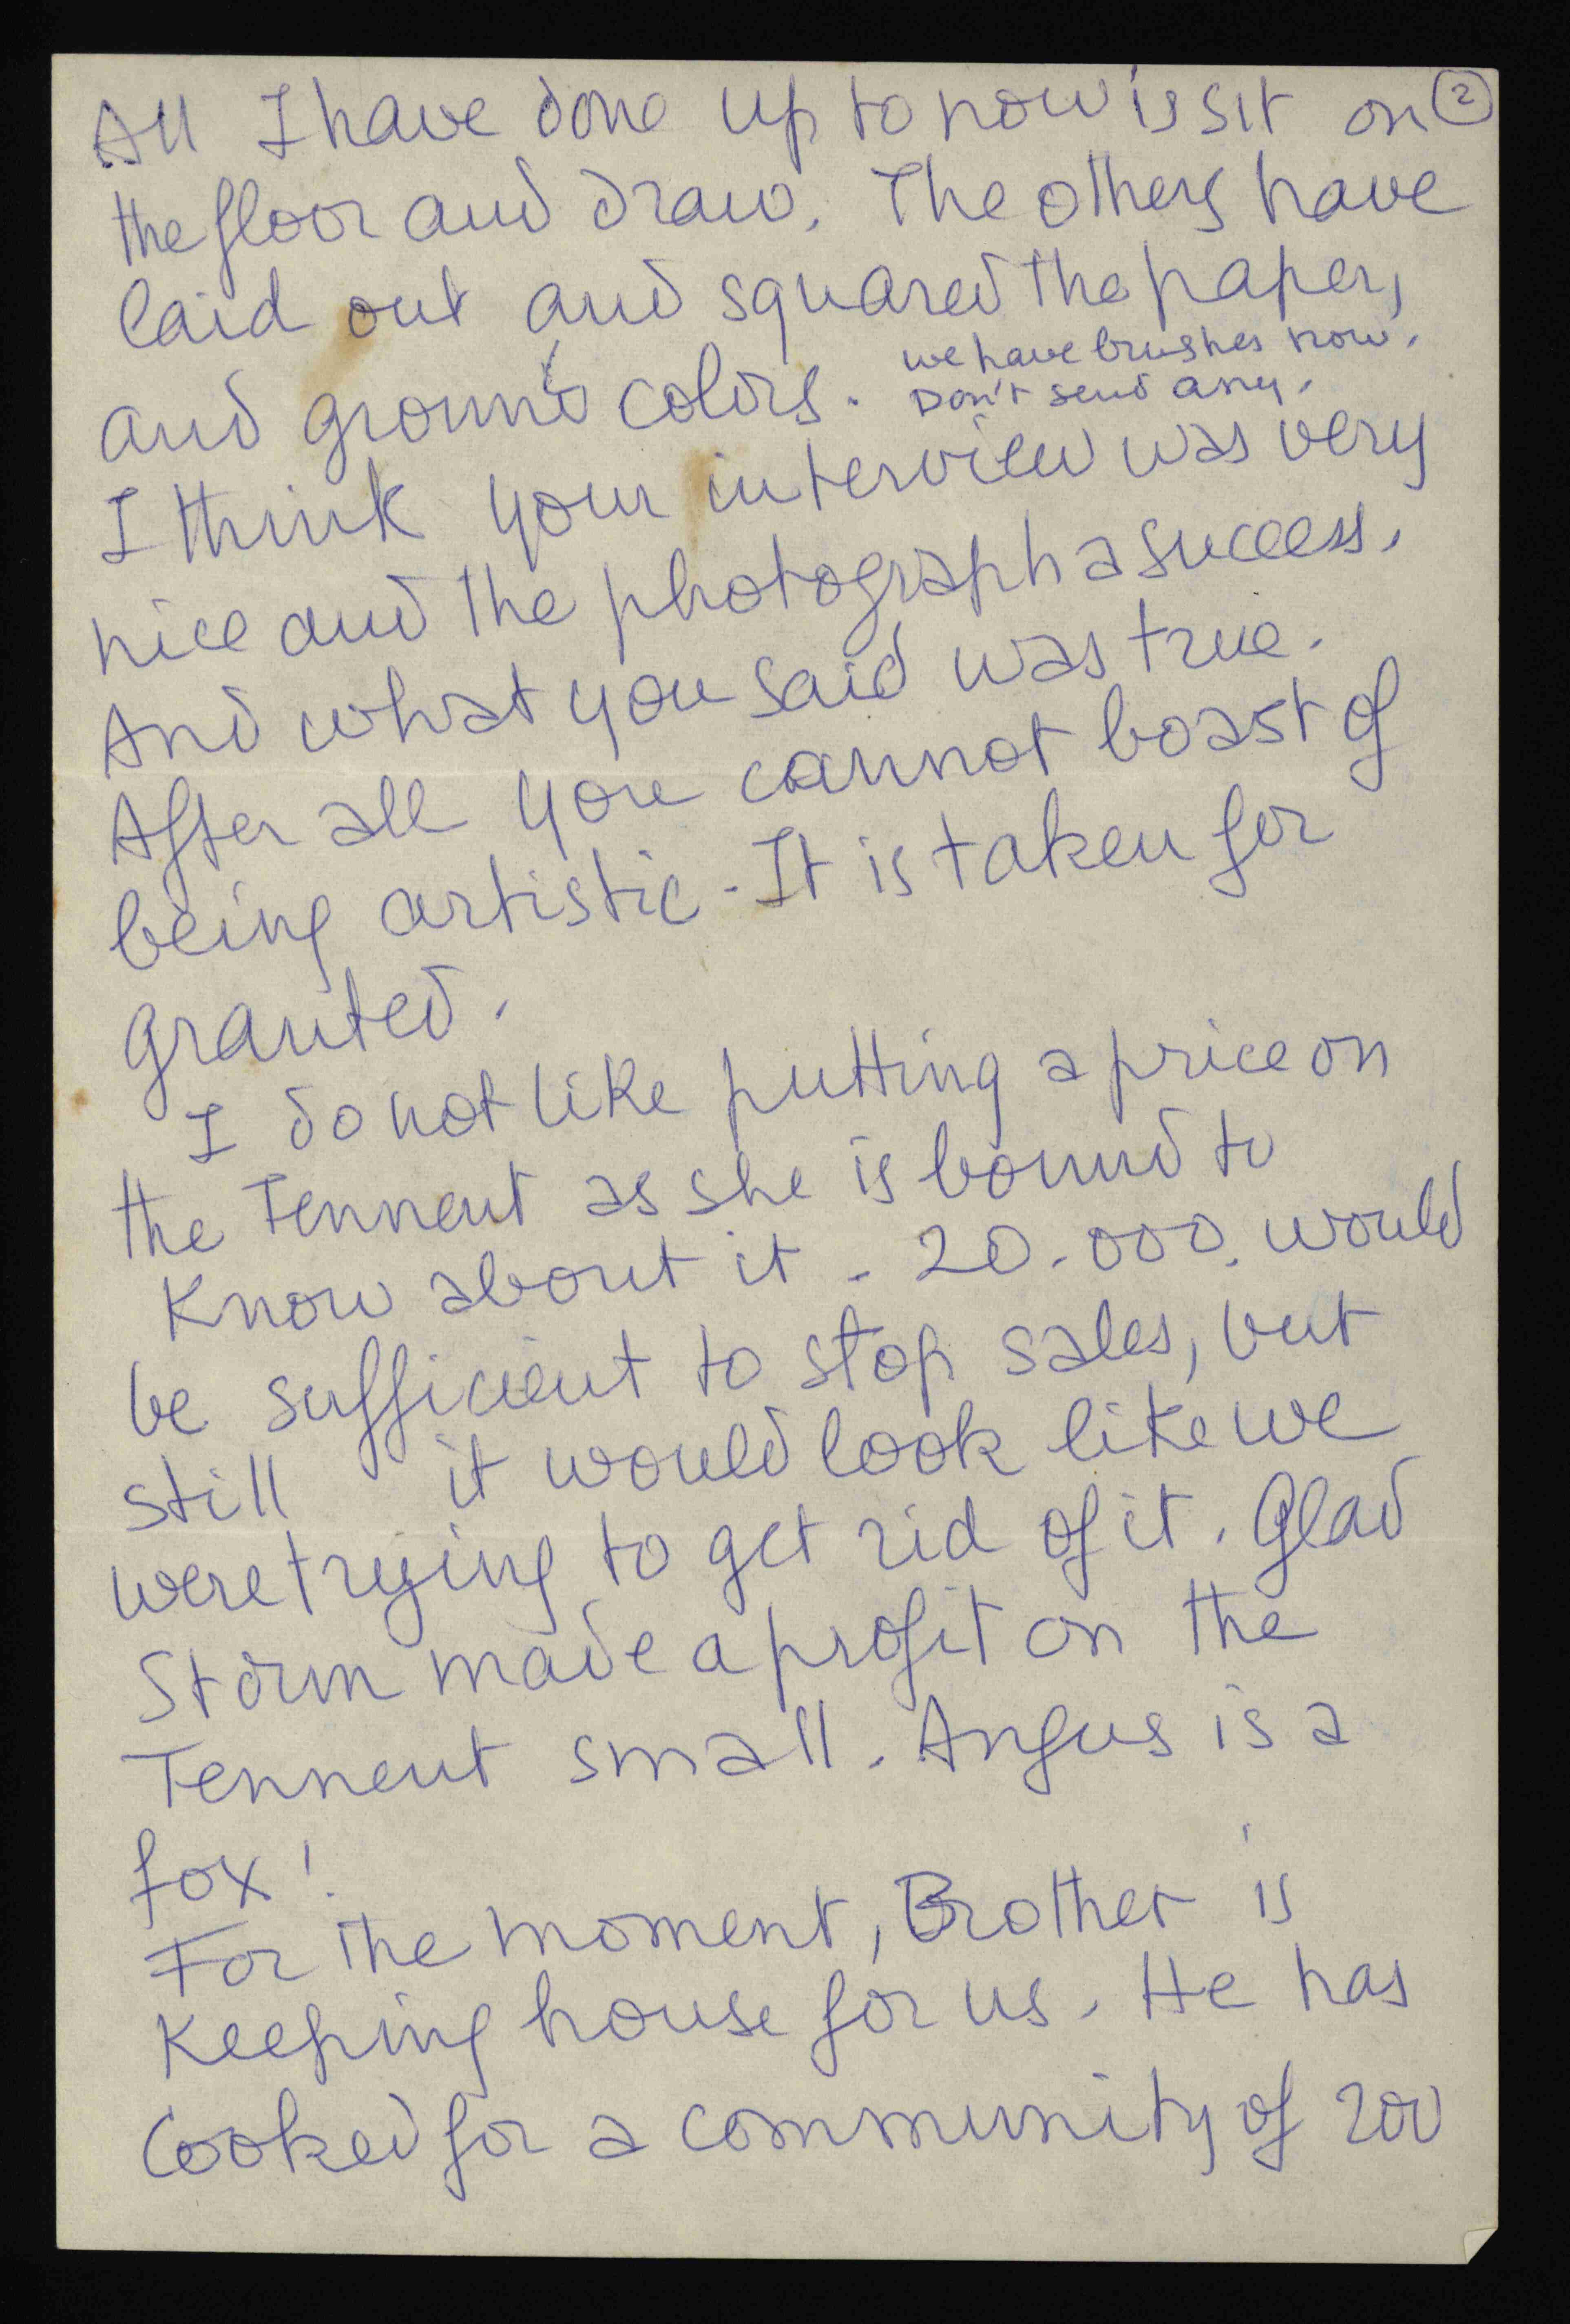 All I have done up to now is sit on ②
the floor and draw. The others have
laid out and squared the paper,
and ground colors. we have brushes now.
Don't send any.
I think your interview was very
nice and the photograph a success.
And what you said was true.
After all you cannot boast of
being artistic. It is taken for
granted.
I do not like putting a price on
the Tennent as she is bound to
know about it. 20.000. would
be sufficient to stop sales, but
still it would look like we
were trying to get rid of it. Glad
Storm made a profit on the
Tennent small. Angus is a
fox!
For the moment, Brother is
keeping house for us. He has
cooked for a community of 200